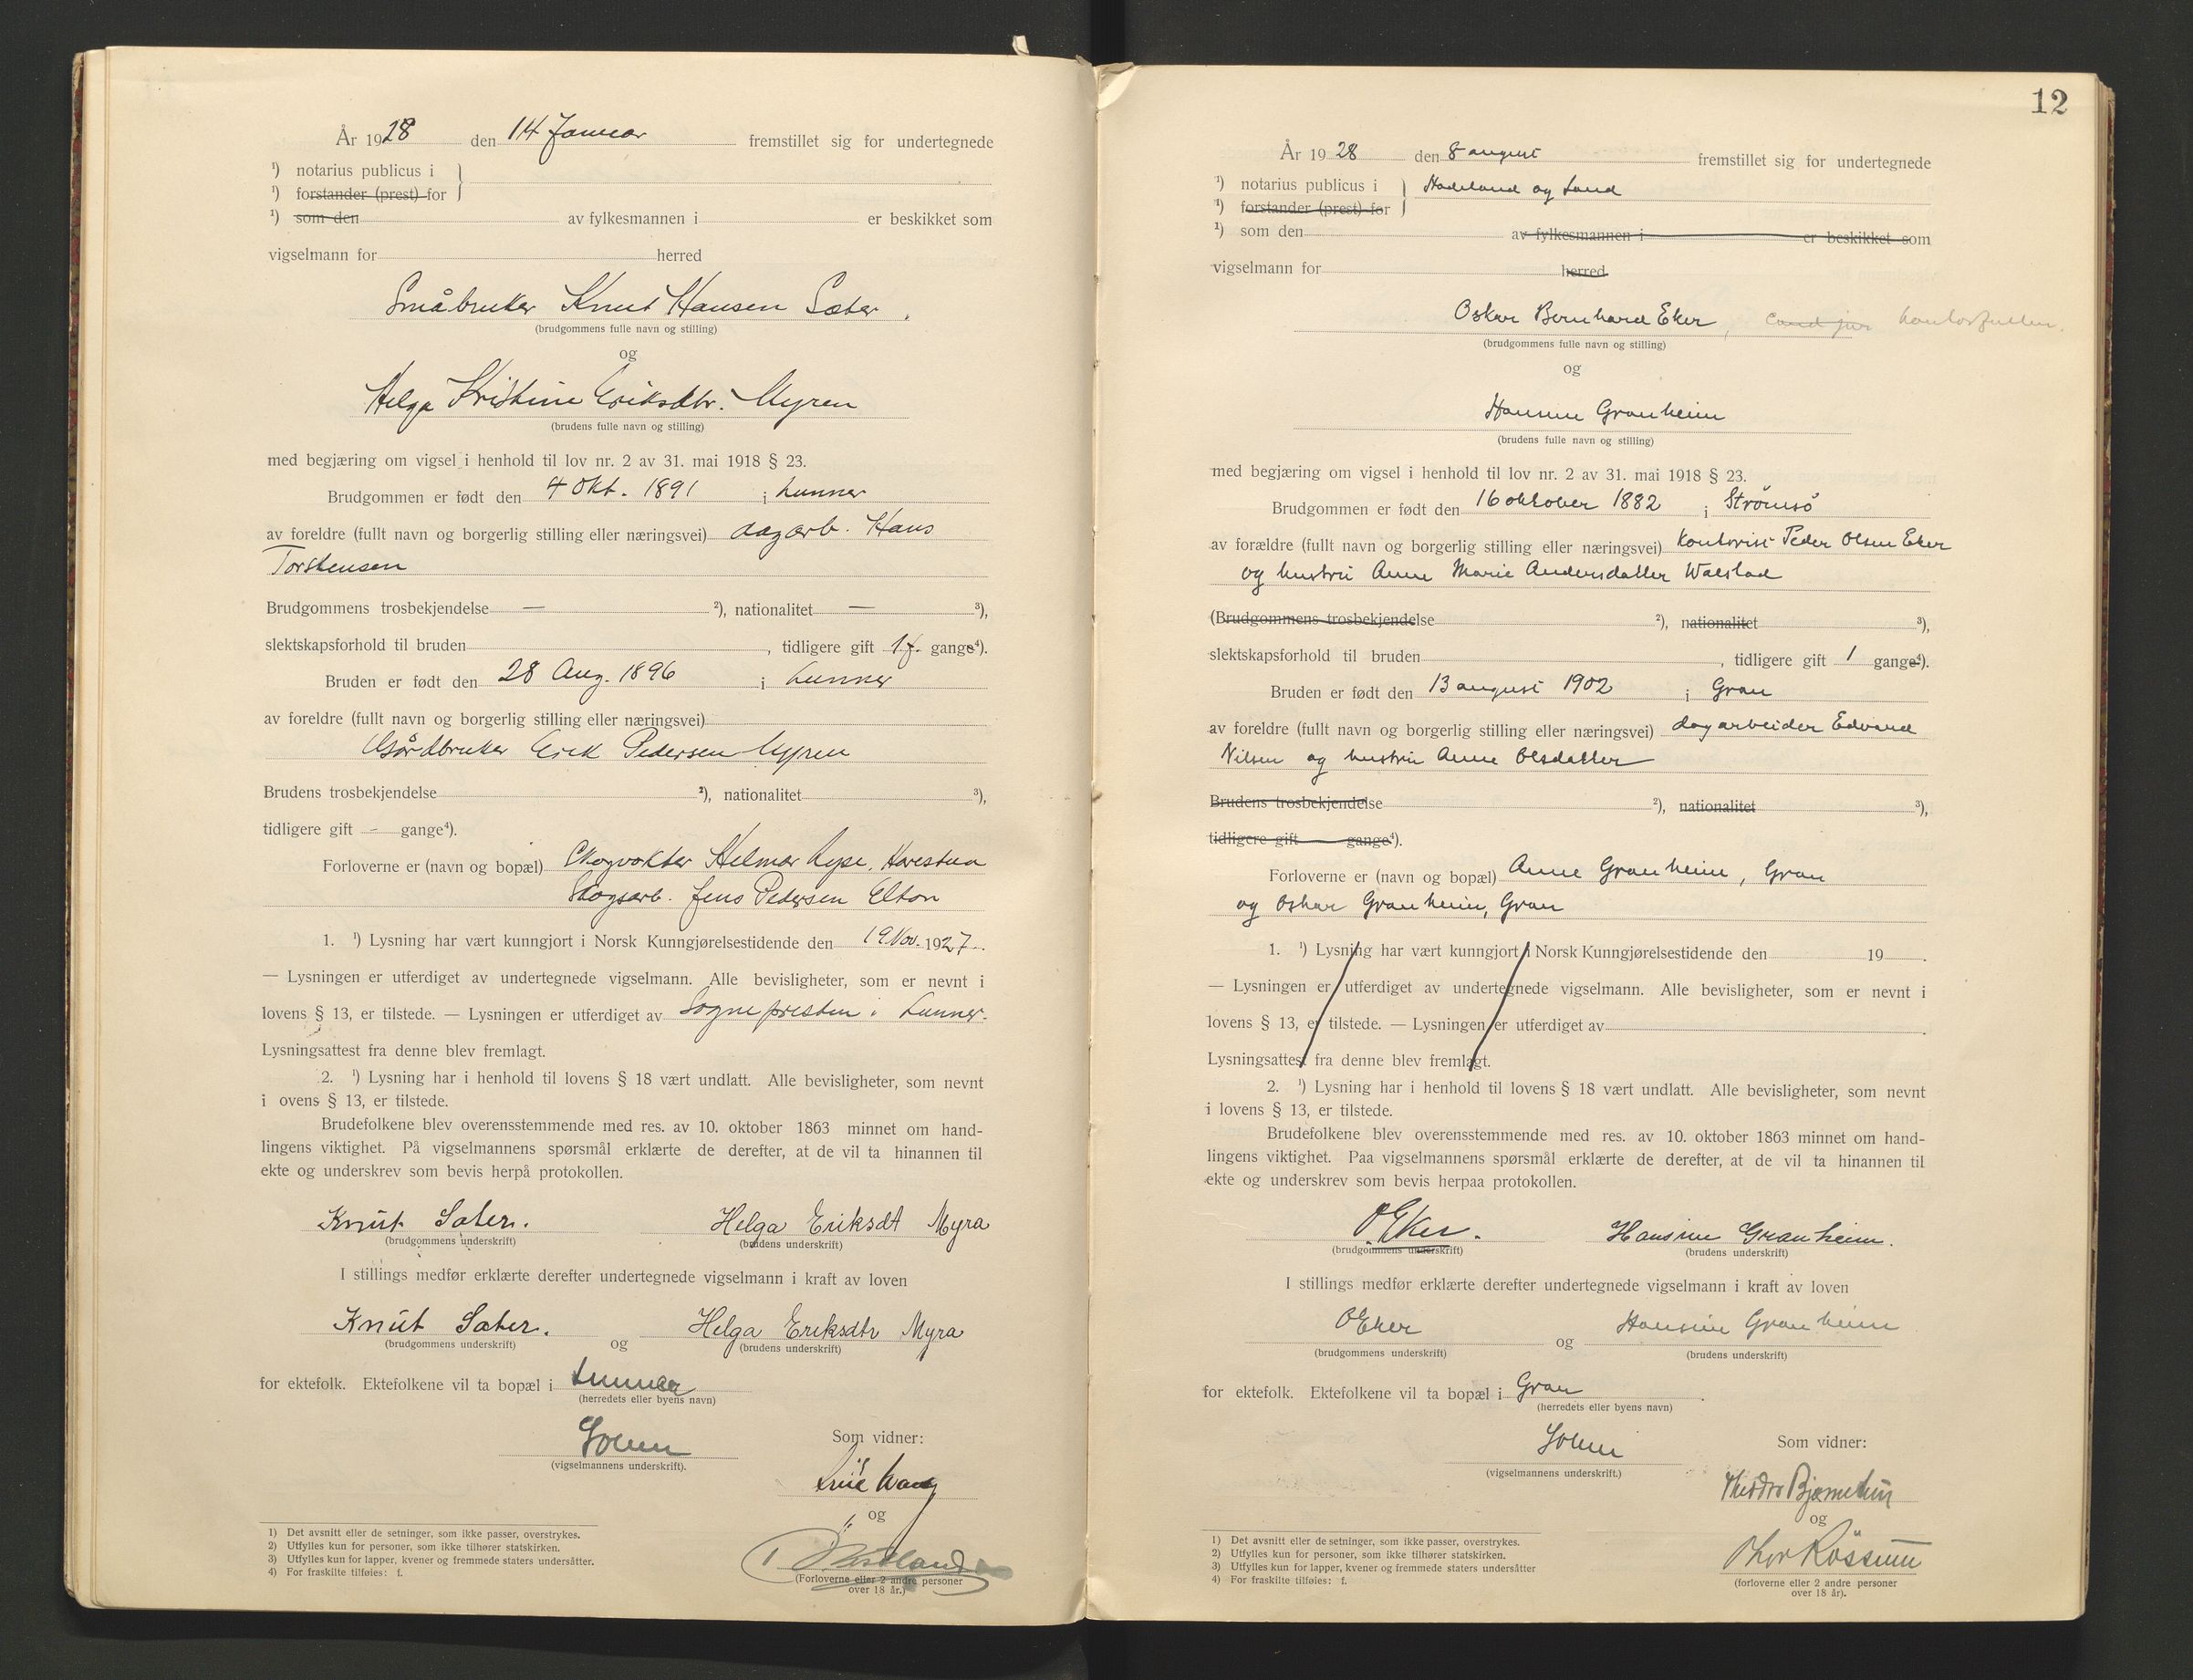 År 1928 den 14 Januar fremstillet sig for undertegnede
¹) notarius publicus i
¹) forstander (prest) for
¹) som den av fylkesmannen i er beskikket som
vigselmann for herred
Småbruker Knut Hansen Sæter.
(brudgommens fulle navn og stilling)
og
Helga Kristine Eriksdtr. Myren
(brudens fulle navn og stilling)
med begjæring om vigsel i henhold til lov nr. 2 av 31. mai 1918 § 23.
Brudgommen er født den 4 Okt. 1891 i Lunner
av foreldre (fullt navn og borgerlig stilling eller næringsvei) dagarb. Hans
Torstensen
Brudgommens trosbekjendelse — ²), nationalitet — ³),
slektskapsforhold til bruden , tidligere gift 1 f. gange⁴).
Bruden er født den 28 Aug. 1896 i Lunner
av foreldre (fullt navn og borgerlig stilling eller næringsvei)
Gårdbruker Erik Pedersen Myren
Brudens trosbekjendelse ²), nationalitet ³),
tidligere gift - gange⁴).
Forloverne er (navn og bopæl) Skogvokter Helmer Lyse, Harestua
Skogsarb. Jens Pedersen Elton
1. ¹) Lysning har vært kunngjort i Norsk Kunngjørelsestidende den 19 Nov. 1927.
— Lysningen er utferdiget av undertegnede vigselmann. Alle bevisligheter, som er nevnt i
lovens § 13, er tilstede. — Lysningen er utferdiget av Sognepresten i Lunner.
Lysningsattest fra denne blev fremlagt.
2. ¹) Lysning har i henhold til lovens § 18 vært undlatt. Alle bevisligheter, som nevnt
i ovens § 13, er tilstede.
Brudefolkene blev overensstemmende med res. av 10. oktober 1863 minnet om hand-
lingens viktighet. På vigselmannens spørsmål erklærte de derefter, at de vil ta hinannen til
ekte og underskrev som bevis herpå protokollen.
Knut Sæter. Helga Eriksdt Myra
(brudgommens underskrift) (brudens underskrift)
I stillings medfør erklærte derefter undertegnede vigselmann i kraft av loven
Knut Sæter. og Helga Eriksdtr Myra
(brudgommens underskrift) (brudens underskrift)
for ektefolk. Ektefolkene vil ta bopæl i Lunner
(herredets eller byens navn)
Som vidner:
(vigselmannens underskrift).
og
(Forloverne eller 2 andre personer
over 18 år.)
1) Det avsnitt eller de setninger, som ikke passer, overstrykes.
2) Utfylles kun for personer, som ikke tilhører statskirken.
3) Utfylles kun for lapper, kvener og fremmede staters undersåtter.
4) For fraskilte tilføies: f.
12
År 1928 den 8 august fremstillet sig for undertegnede
¹) notarius publicus i Hadeland og Land
¹) forstander (prest) for
¹) som den av fylkesmannen i er beskikket som
vigselmann for herred
Oskar Bernhard Eker, cand jur kontorfullm.
(brudgommens fulle navn og stilling)
og
Hansine Granheim
(brudens fulle navn og stilling)
med begjæring om vigsel i henhold til lov nr. 2 av 31. mai 1918 § 23.
Brudgommen er født den 16 oktober 1882 i Strømsö
av forældre (fullt navn og borgerlig stilling eller næringsvei) Kontorist Peder Olsen Eker
og hustru Anne Marie Andersdatter Walstad
(Brudgommens trosbekjendelse ²), nationalitet ³),
slektskapsforhold til bruden , tidligere gift 1 gange⁴).
Bruden er født den 13 august 1902 i Gran
av foreldre (fullt navn og borgerlig stilling eller næringsvei) dagarbeider Edvard
Nilsen og hustru Anne Olsdatter
Brudens trosbekjendelse ²), nationalitet ³),
tidligere gift gange⁴).
Forloverne er (navn og bopæl) Anne Granheim, Gran
og Oskar Granheim, Gran
1. ¹) Lysning har vært kunngjort i Norsk Kunngjørelsestidende den 19 .
— Lysningen er utferdiget av undertegnede vigselmann. Alle bevisligheter, som er nevnt i
lovens § 13, er tilstede. — Lysningen er utferdiget av .
Lysningsattest fra denne blev fremlagt.
2. ¹) Lysning har i henhold til lovens § 18 vært undlatt. Alle bevisligheter, som nevnt
i lovens § 13, er tilstede.
Brudefolkene blev overensstemmende med res. av 10. oktober 1863 minnet om hand-
lingens viktighet. Paa vigselmannens spørsmål erklærte de derefter, at de vil ta hinannen til
ekte og underskrev som bevis herpaa protokollen.
O Eker. Hansine Granheim.
(brudgommens underskrift) (brudens underskrift)
I stillings medfør erklærte derefter undertegnede vigselmann i kraft av loven
O Eker og Hansine Granheim
(brudgommens underskrift) (brudens underskrift)
for ektefolk. Ektefolkene vil ta bopæl i Gran .
(herredets eller byens navn)
Som vidner:
(vigselmannens underskrift.)
og
Thor Røssum
(forloverne eller 2 andre personer
over 18 år).
1) Det avsnitt eller de setninger, som ikke passer, overstrykes.
2) Utfylles kun for personer, som ikke tilhører statskirken.
3) Utfylles kun for lapper, kvener og fremmede staters undersåtter
4) For fraskilte tilføies: f.